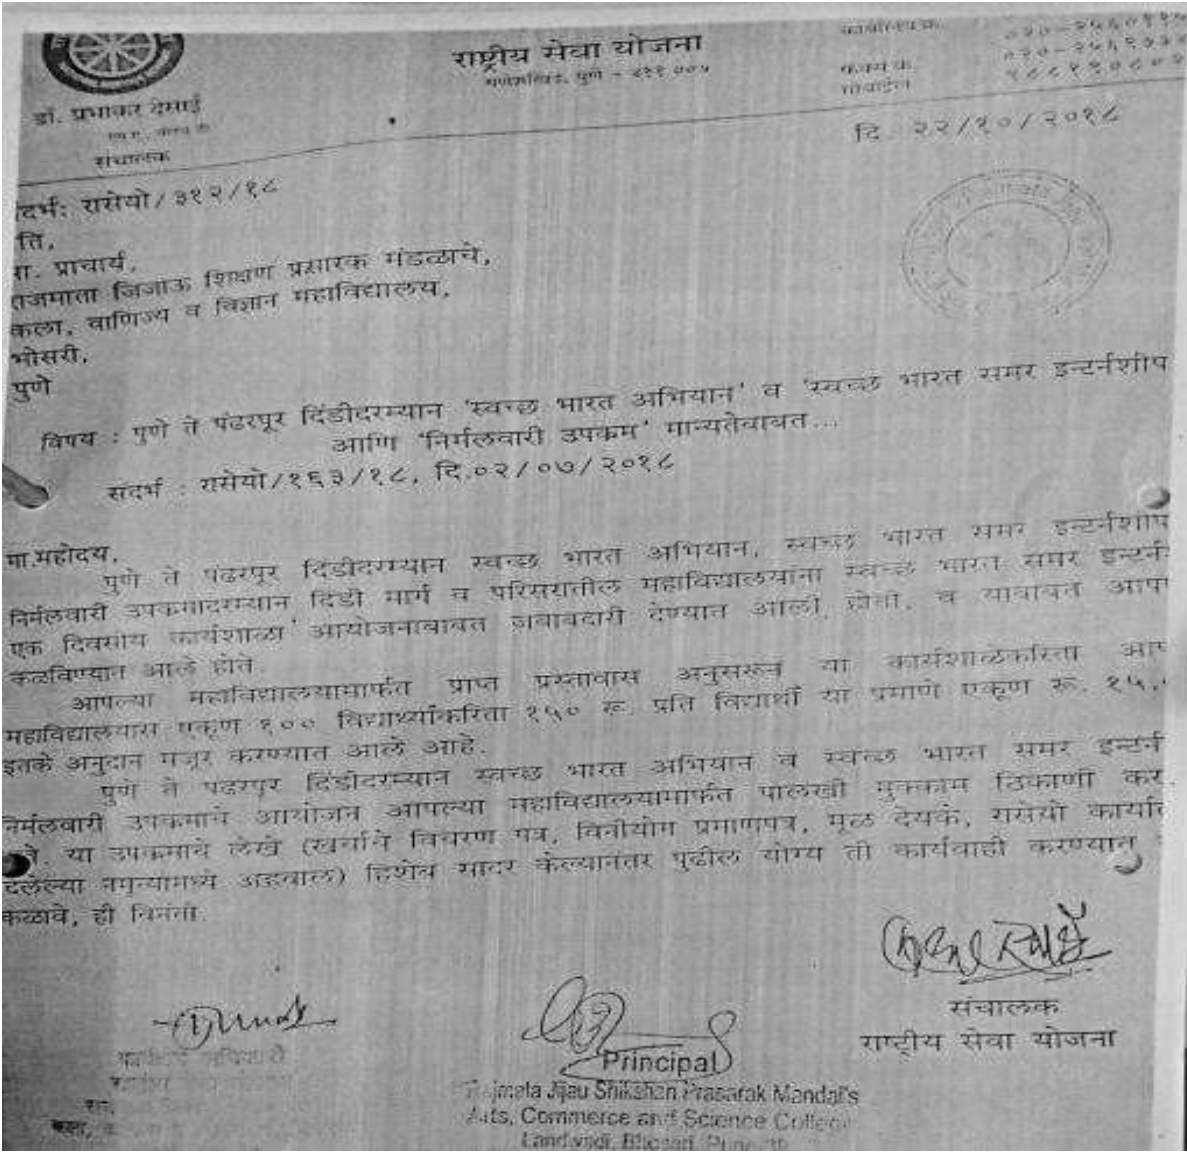 राष्ट्रीय सेवा योजना
गणेशखिंड, पुणे - ४११ ००७
डॉ. प्रभाकर देसाई
संचालक
दि. २२/१०/२०१८
दर्भ: रासेयो/३१२/१८
ति,
मा. प्राचार्य,
राजमाता जिजाऊ शिक्षण प्रसारक मंडळाचे,
कला, वाणिज्य व विज्ञान महाविद्यालय,
भोसरी,
पुणे
विषय : पुणे ते पंढरपूर दिंडीदरम्यान 'स्वच्छ भारत अभियान' व 'स्वच्छ भारत समर इन्टर्नशीप
आणि 'निर्मलवारी उपक्रम' मान्यतेबाबत...
संदर्भ : रासेयो/१६३/१८, दि.०२/०७/२०१८
मा.महोदय,
पुणे ते पंढरपूर दिंडीदरम्यान स्वच्छ भारत अभियान, स्वच्छ भारत समर इन्टर्नशीप
निर्मलवारी उपक्रमादरम्यान दिंडी मार्ग व परिसरातील महाविद्यालयांना स्वच्छ भारत समर इन्टर्न
एक दिवसीय कार्यशाळा आयोजनाबाबत जबाबदारी देण्यात आली होती. व याबाबत आप
कळविण्यात आले होते.
आपल्या महाविद्यालयामार्फत प्राप्त प्रस्तावास अनुसरून या कार्यशाळेकरिता आप
महाविद्यालयास एकूण १०० विद्यार्थ्यांकरिता १५० रू. प्रति विद्यार्थी या प्रमाणे एकूण रू. १५,
इतके अनुदान मंजूर करण्यात आले आहे.
पुणे ते पंढरपूर दिंडीदरम्यान स्वच्छ भारत अभियान व स्वच्छ भारत समर इन्टर्न
निर्मलवारी उपक्रमाचे आयोजन आपल्या महाविद्यालयामार्फत पालखी मुक्काम ठिकाणी कर
या उपक्रमाचे लेखे (खर्चाचे विवरण पत्र, विनीयोग प्रमाणपत्र, मूळ देयके, रासेयो कार्याल
दिलेल्या नमुन्यामध्ये अहवाल) हिशेब सादर केल्यानंतर पुढील योग्य ती कार्यवाही करण्यात
कळावे, ही विनंती.
संचालक
राष्ट्रीय सेवा योजना
Principal
Rajmata Jijau Shikshan Prasarak Mandal's
Arts, Commerce and Science College
Landwadi, Bhosari, Pune-39